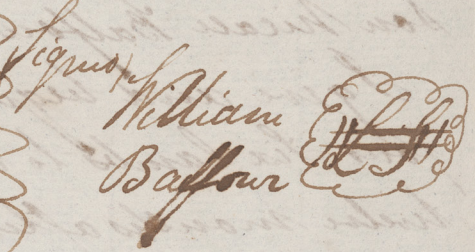 Signed/
William
Balfour
LS